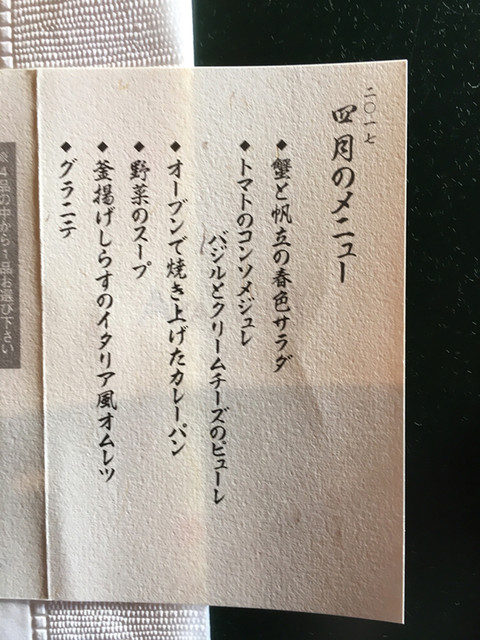 二〇一七
四月のメニュー
◆蟹と帆立の春色サラダ
◆トマトのコンソメジュレ
バジルとクリームチーズのピューレ
◆オーブンで焼き上げたカレーパン
◆野菜のスープ
◆釜揚げしらすのイタリア風オムレツ
◆グラニテ
4品の中から1品お選び下さい